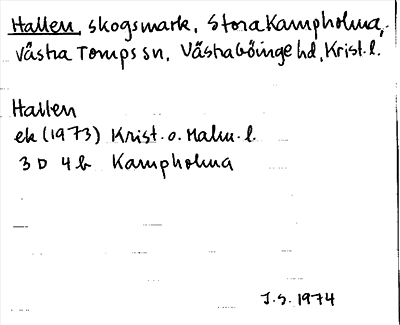 Hallen, skogsmark, Stora Kampholma,
Västra Torups sn, Västra Göinge hd, Krist. l.
Hallen
ek (1973) Krist. o. Malm. l.
3 D 4 b Kampholma
J.S. 1974